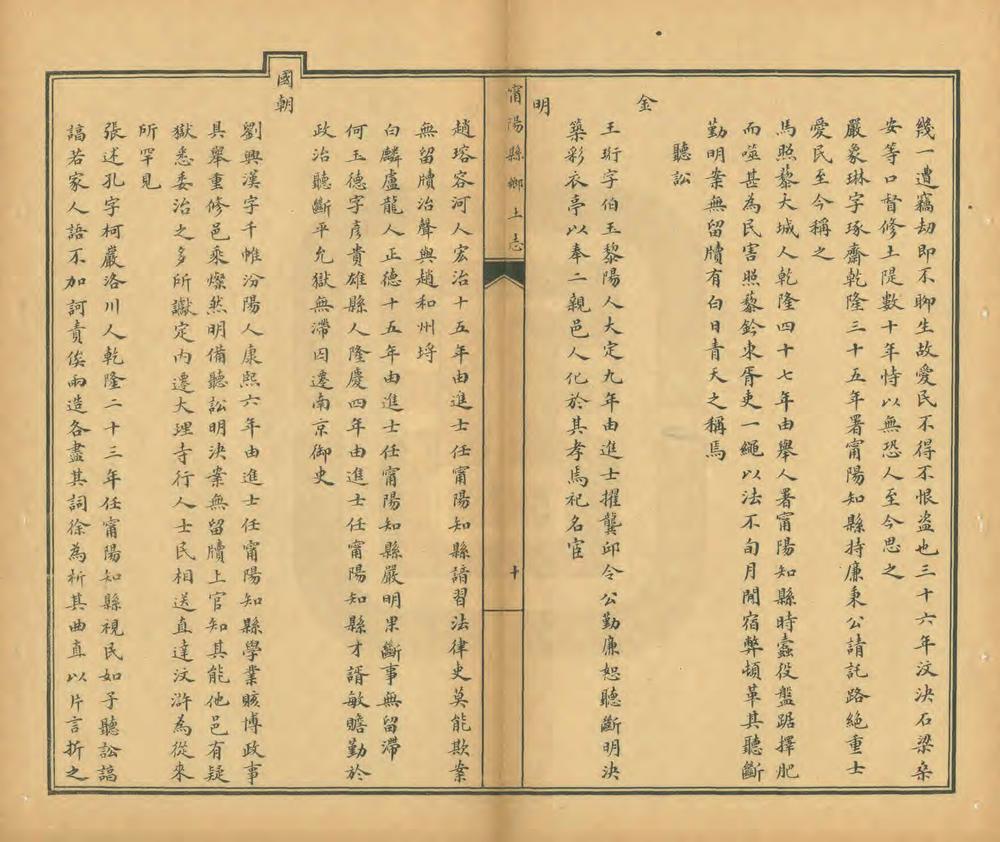 幾一遭竊劫即不聊生故愛民不得不恨盜也三十六年汶決石梁桑
安等口督修土隄數十年恃以無恐人至今思之
嚴象琳字琢齋乾隆三十五年署甯陽知縣持廉秉公請託路絕重士
愛民至今稱之
馬照藜大城人乾隆四十七年由舉人署甯陽知縣時蠹役盤踞擇肥
而噬甚為民害照藜鈐束胥吏一繩以法不旬月閒宿弊頓革其聽斷
勤明案無留牘有白日青天之稱焉
聽訟
金
王珩字伯玉黎陽人大定九年由進士擢龔邱令公勤廉恕聽斷明決
築彩衣亭以奉二親邑人化於其孝焉祀名宦
明
甯陽縣鄉土志
十
趙瑢容河人宏治十五年由進士任甯陽知縣諳習法律吏莫能欺案
無留牘治聲與趙和州埒
白麟盧龍人正德十五年由進士任甯陽知縣嚴明果斷事無留滯
何玉德字彥貴雄縣人隆慶四年由進士任甯陽知縣才諝敏贍勤於
政治聽斷平允獄無滯囚遷南京御史
國朝
劉興漢字千帷汾陽人康熙六年由進士任甯陽知縣學業賅博政事
具舉重修邑乘燦然明備聽訟明決案無留牘上官知其能他邑有疑
獄悉委治之多所讞定內遷大理寺行人士民相送直達汶滸為從來
所罕見
張述孔字柯嚴洛川人乾隆二十三年任甯陽知縣視民如子聽訟諄
諄若家人語不加訶責俟兩造各盡其詞徐為析其曲直以片言折之